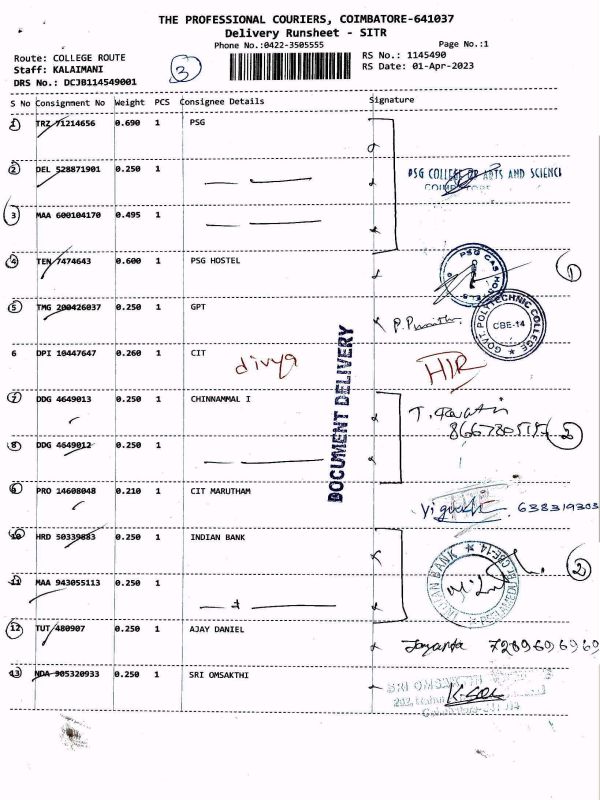 THE PROFESSIONAL COURIERS, COIMBATORE-641037
Delivery Runsheet - SITR
Phone No.:0422-3505555 Page No.:1
Route: COLLEGE ROUTE RS No.: 1145490
Staff: KALAIMANI 3 RS Date: 01-Apr-2023
DRS No.: DCJB114549001
S No Consignment No Weight PCS Consignee Details Signature
1 TRZ 71214656 0.690 1 PSG
2 DEL 528871901 0.250 1 PSG COLLEGE OF ARTS AND SCIENCE
COIMBATORE
3 MAA 600104170 0.495 1
4 TEN 7474643 0.600 1 PSG HOSTEL PSG CAS HOSTELS 1
5 TMG 200426037 0.250 1 GPT GOVT POLYTECHNIC COLLEGE CBE-14
6 DPI 10447647 0.260 1 CIT divya HIR
DOCUMENT DELIVERY
7 DDG 4649013 0.250 1 CHINNAMMAL I
8 DDG 4649012 0.250 1 2
9 PRO 14608048 0.210 1 CIT MARUTHAM 638319303
10 HRD 50339883 0.250 1 INDIAN BANK INDIAN BANK CBE-14 2
11 MAA 943055113 0.250 1
12 TUT 480907 0.250 1 AJAY DANIEL 7289696969
13 NDA 905320933 0.250 1 SRI OMSAKTHI SRI OMSAKTHI